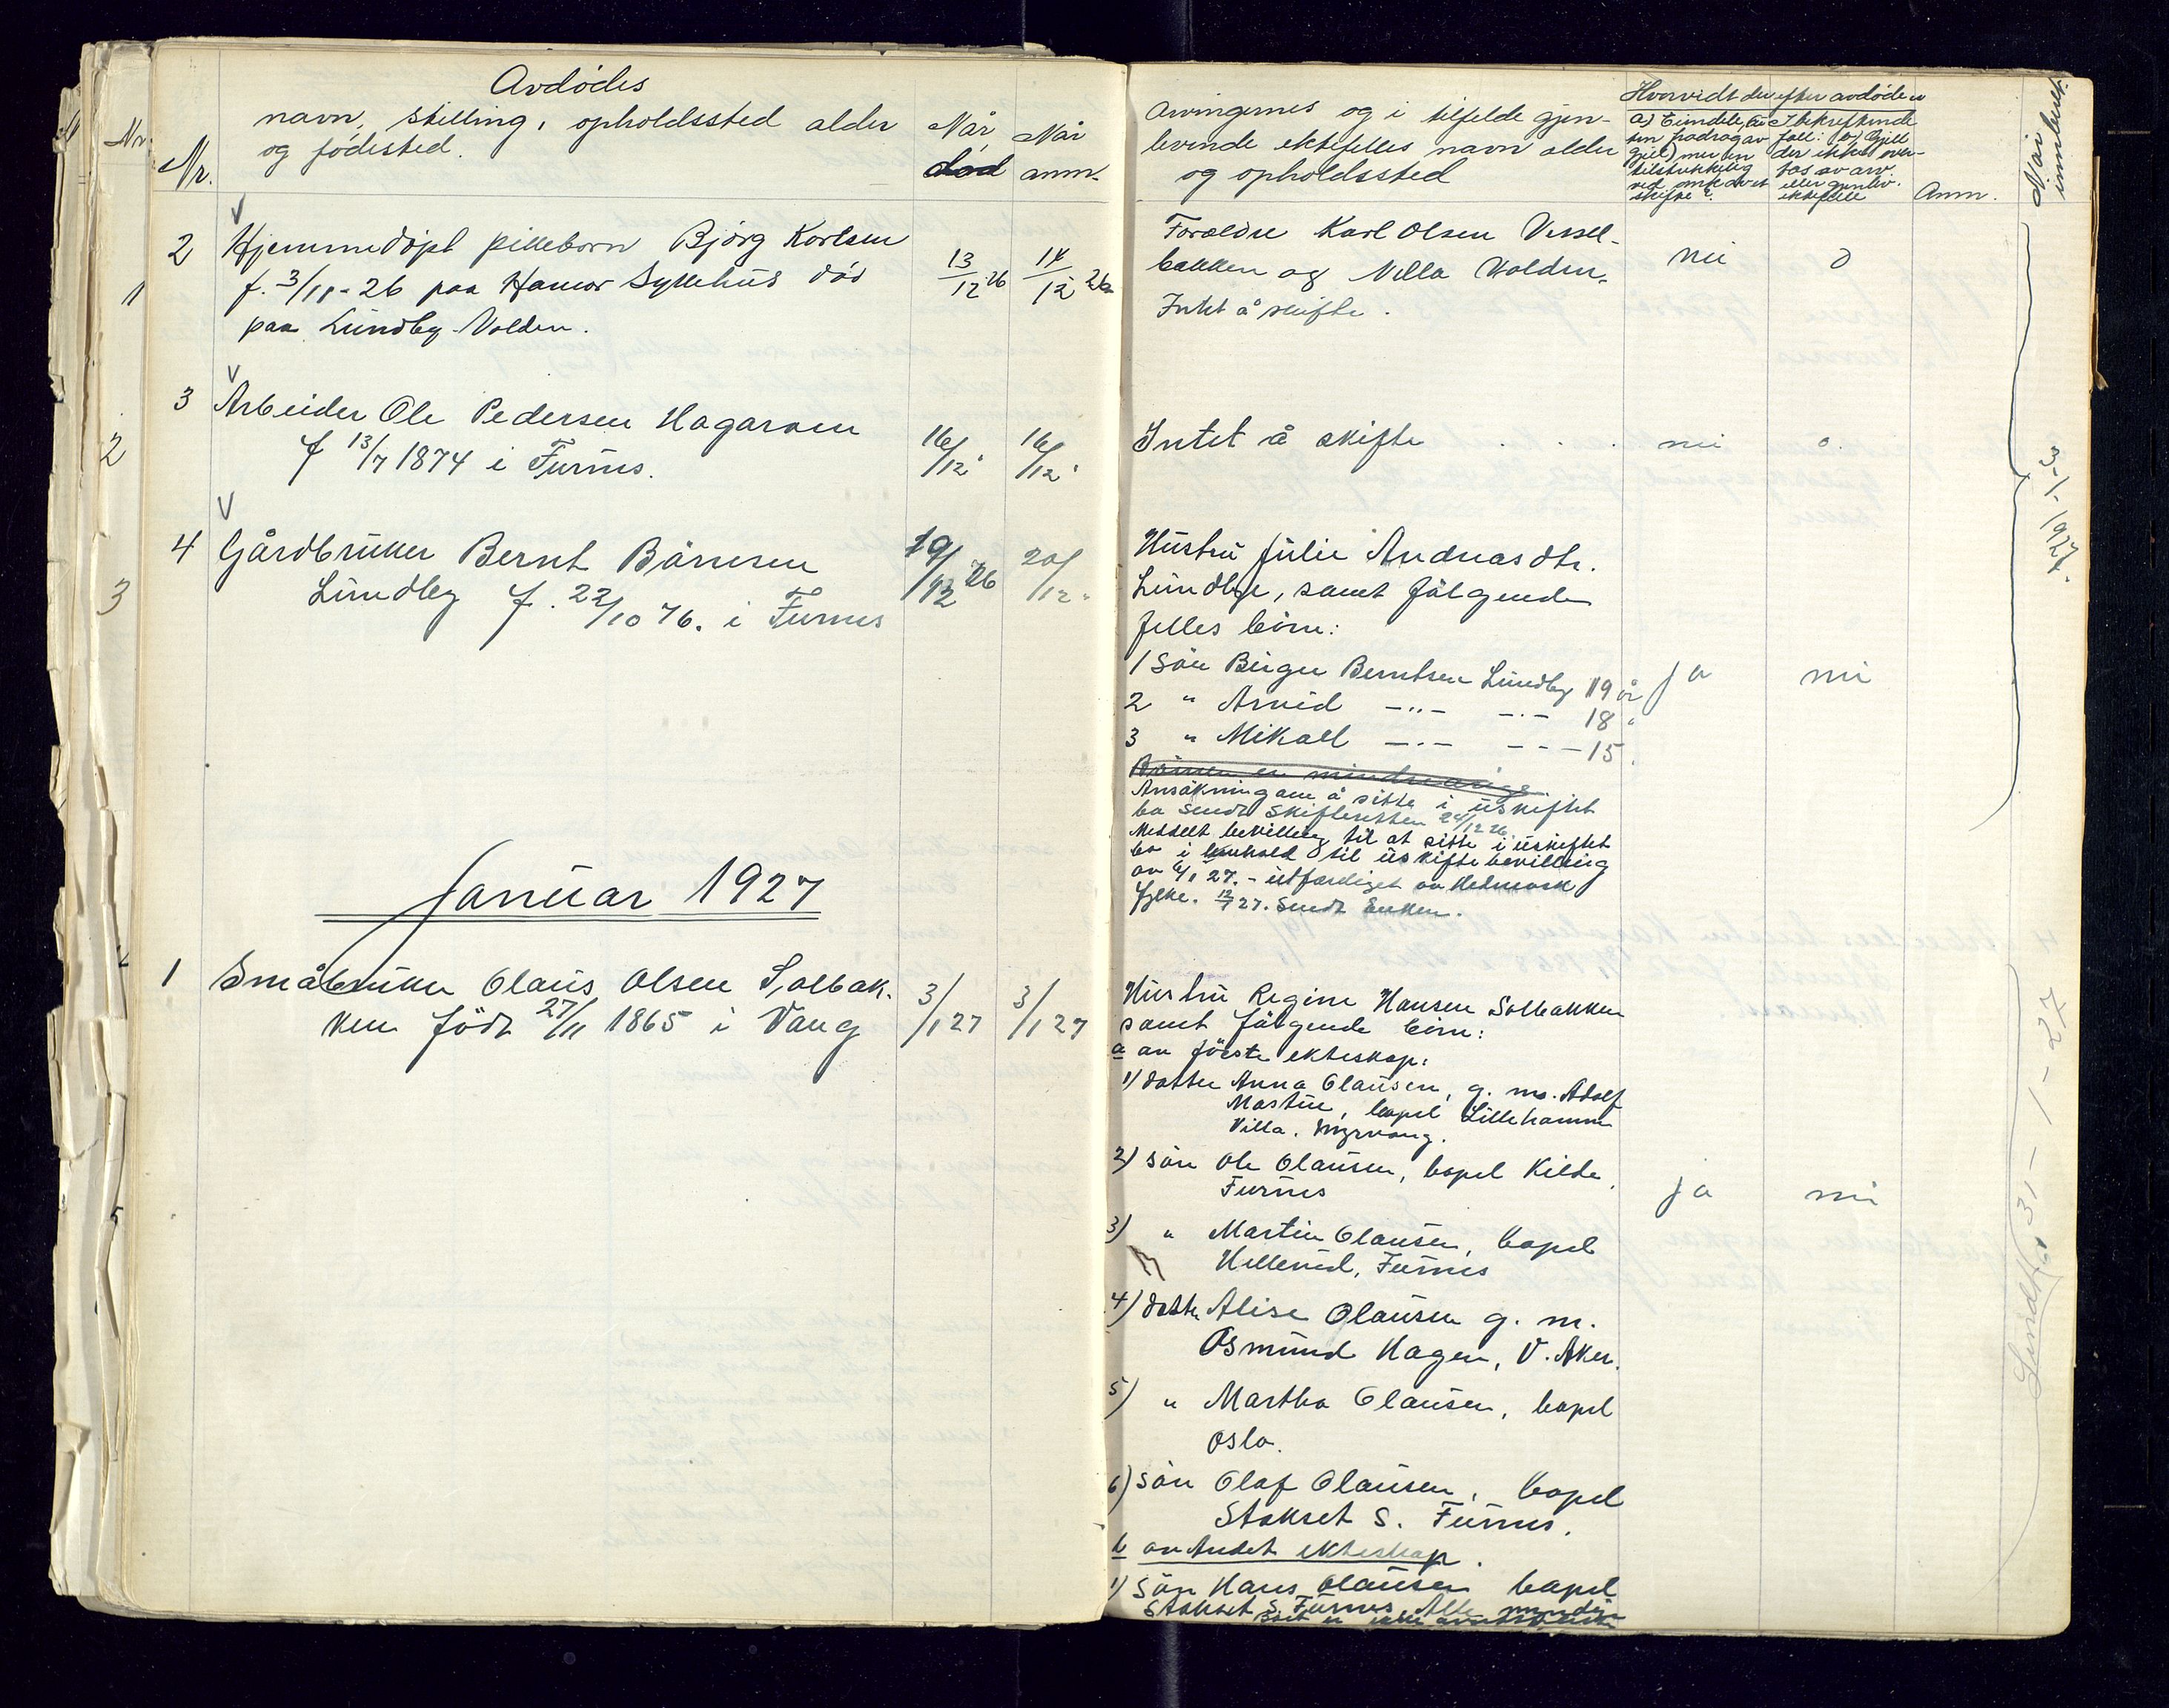 Avdødes
navn, stilling, opholdssted alder
og fødested.
Nr.
Når
død
Når
anm.
Nr.
2 Hjemmedöpt pikebarn Bjórg Karlsen
f. 3/11-26 paa Hamar Sykehus död
paa Lundby-Volden.
13/12 26
14/12 26
1
3 Arbeider Ole Pedersen Hagaroen
f 13/7 1874 i Furnes.
16/12
16/12
2
4 Gårdbruker Bernt Börresen
Lundby f. 22/10 76. i Furnes
19/12 26
20/12
3
Januar 1927
1 Småbruker Olaus Olsen Solbak-
ken födt 27/11 1865 i Vang
3/1 27
3/1 27
5
Arvingernes og i tilfelde gjen-
levende ektefelles navn alder
og opholdssted
Hvorvidt der efter avdøde er
a) Eiendele
Anm.
Når
innberet.
Foreldre Karl Olsen Vessel-
bakken og Milla Volden.
Intet å skifte.
nei
0
Intet å skifte . . .
nei
0.
3-1-1927.
Hustru Julie Andreasdtr.
Lundby, samt fölgende
felles börn:
1 Sön Birger Berntsen Lundby 19 år
2 " Arvid -"- -"- 18 "
3 " Mikael -"- -"- 15.
ja
nei
Börnen er mindreårige
Ansökning om å sitte i uskiftet
bo sendt Skifteretten 24/12 26
Meddelt bevilling til at sitte i uskiftet
bo i henhold til uskiftebevilling
av 6/1 27. - utferdiget av Hedmark
fylke. 12/1 27. Sendt Enken.
Hustru Regine Hansen Solbakken
samt fölgende börn:
a av förste ekteskap:
1) datter Anna Olausen, g. m. Adolf
Martin, bopel Lillehammer
Villa. Myrvang.
2) sön Ole Olausen, bopel Kilde,
Furnes
ja
nei
3) " Martin Olausen, bopel
Hellerud, Furnes
4) datter Alise Olausen g. m.
Osmund Hagen, V. Aker.
5) " Martha Olausen, bopel
Oslo.
6) sön Olaf Olausen, bopel
Stakset S. Furnes.
b av Andet ekteskap.
1) Sön Hans Olausen bopel
Stakset S. Furnes Alle myndig
Sendt 31-1-27